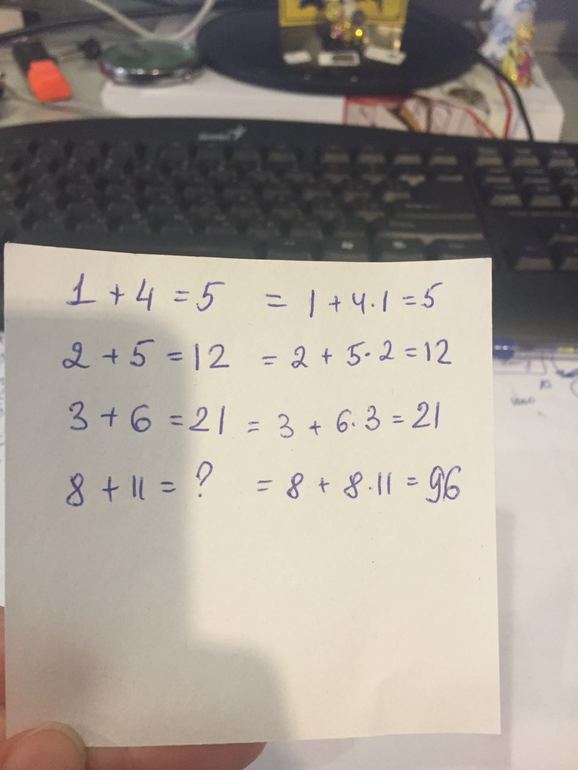 1 + 4 = 5 = 1 + 4·1 = 5
2 + 5 = 12 = 2 + 5·2 = 12
3 + 6 = 21 = 3 + 6·3 = 21
8 + 11 = ? = 8 + 8·11 = 96